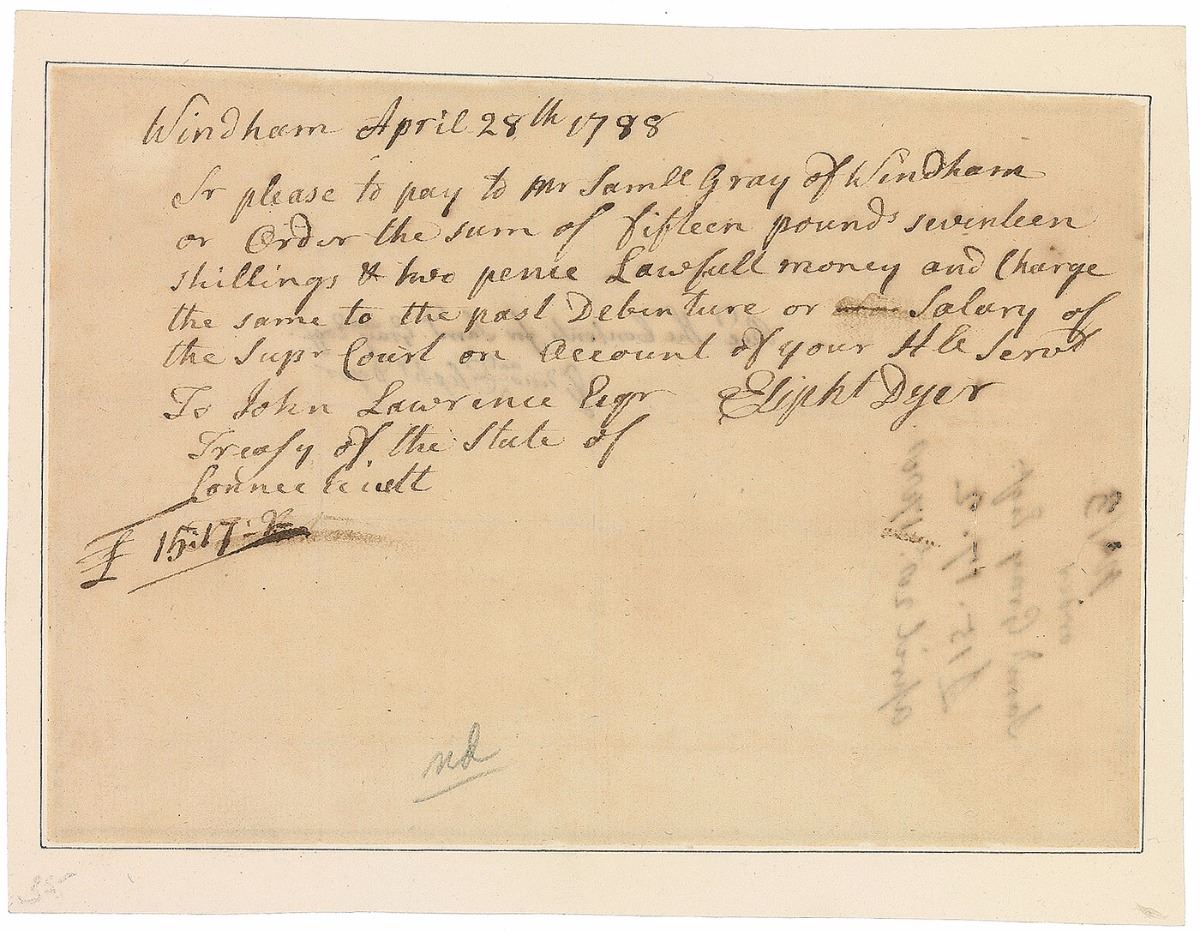 Windham April 28th 1788
Sr please to pay to Mr Samll Gray of Windham
or Order the sum of fifteen pounds seventeen
shillings & two pence Lawfull money and Charge
the same to the past Debenture or Salary of
the Supr Court on Account of your Hle Servt
To John Lawrence Esqr Elipht Dyer
Treasy of the State of
Connecticutt
£ 15:17:2
nd
April 28th 1788
£15..17..2
Saml Gray
order